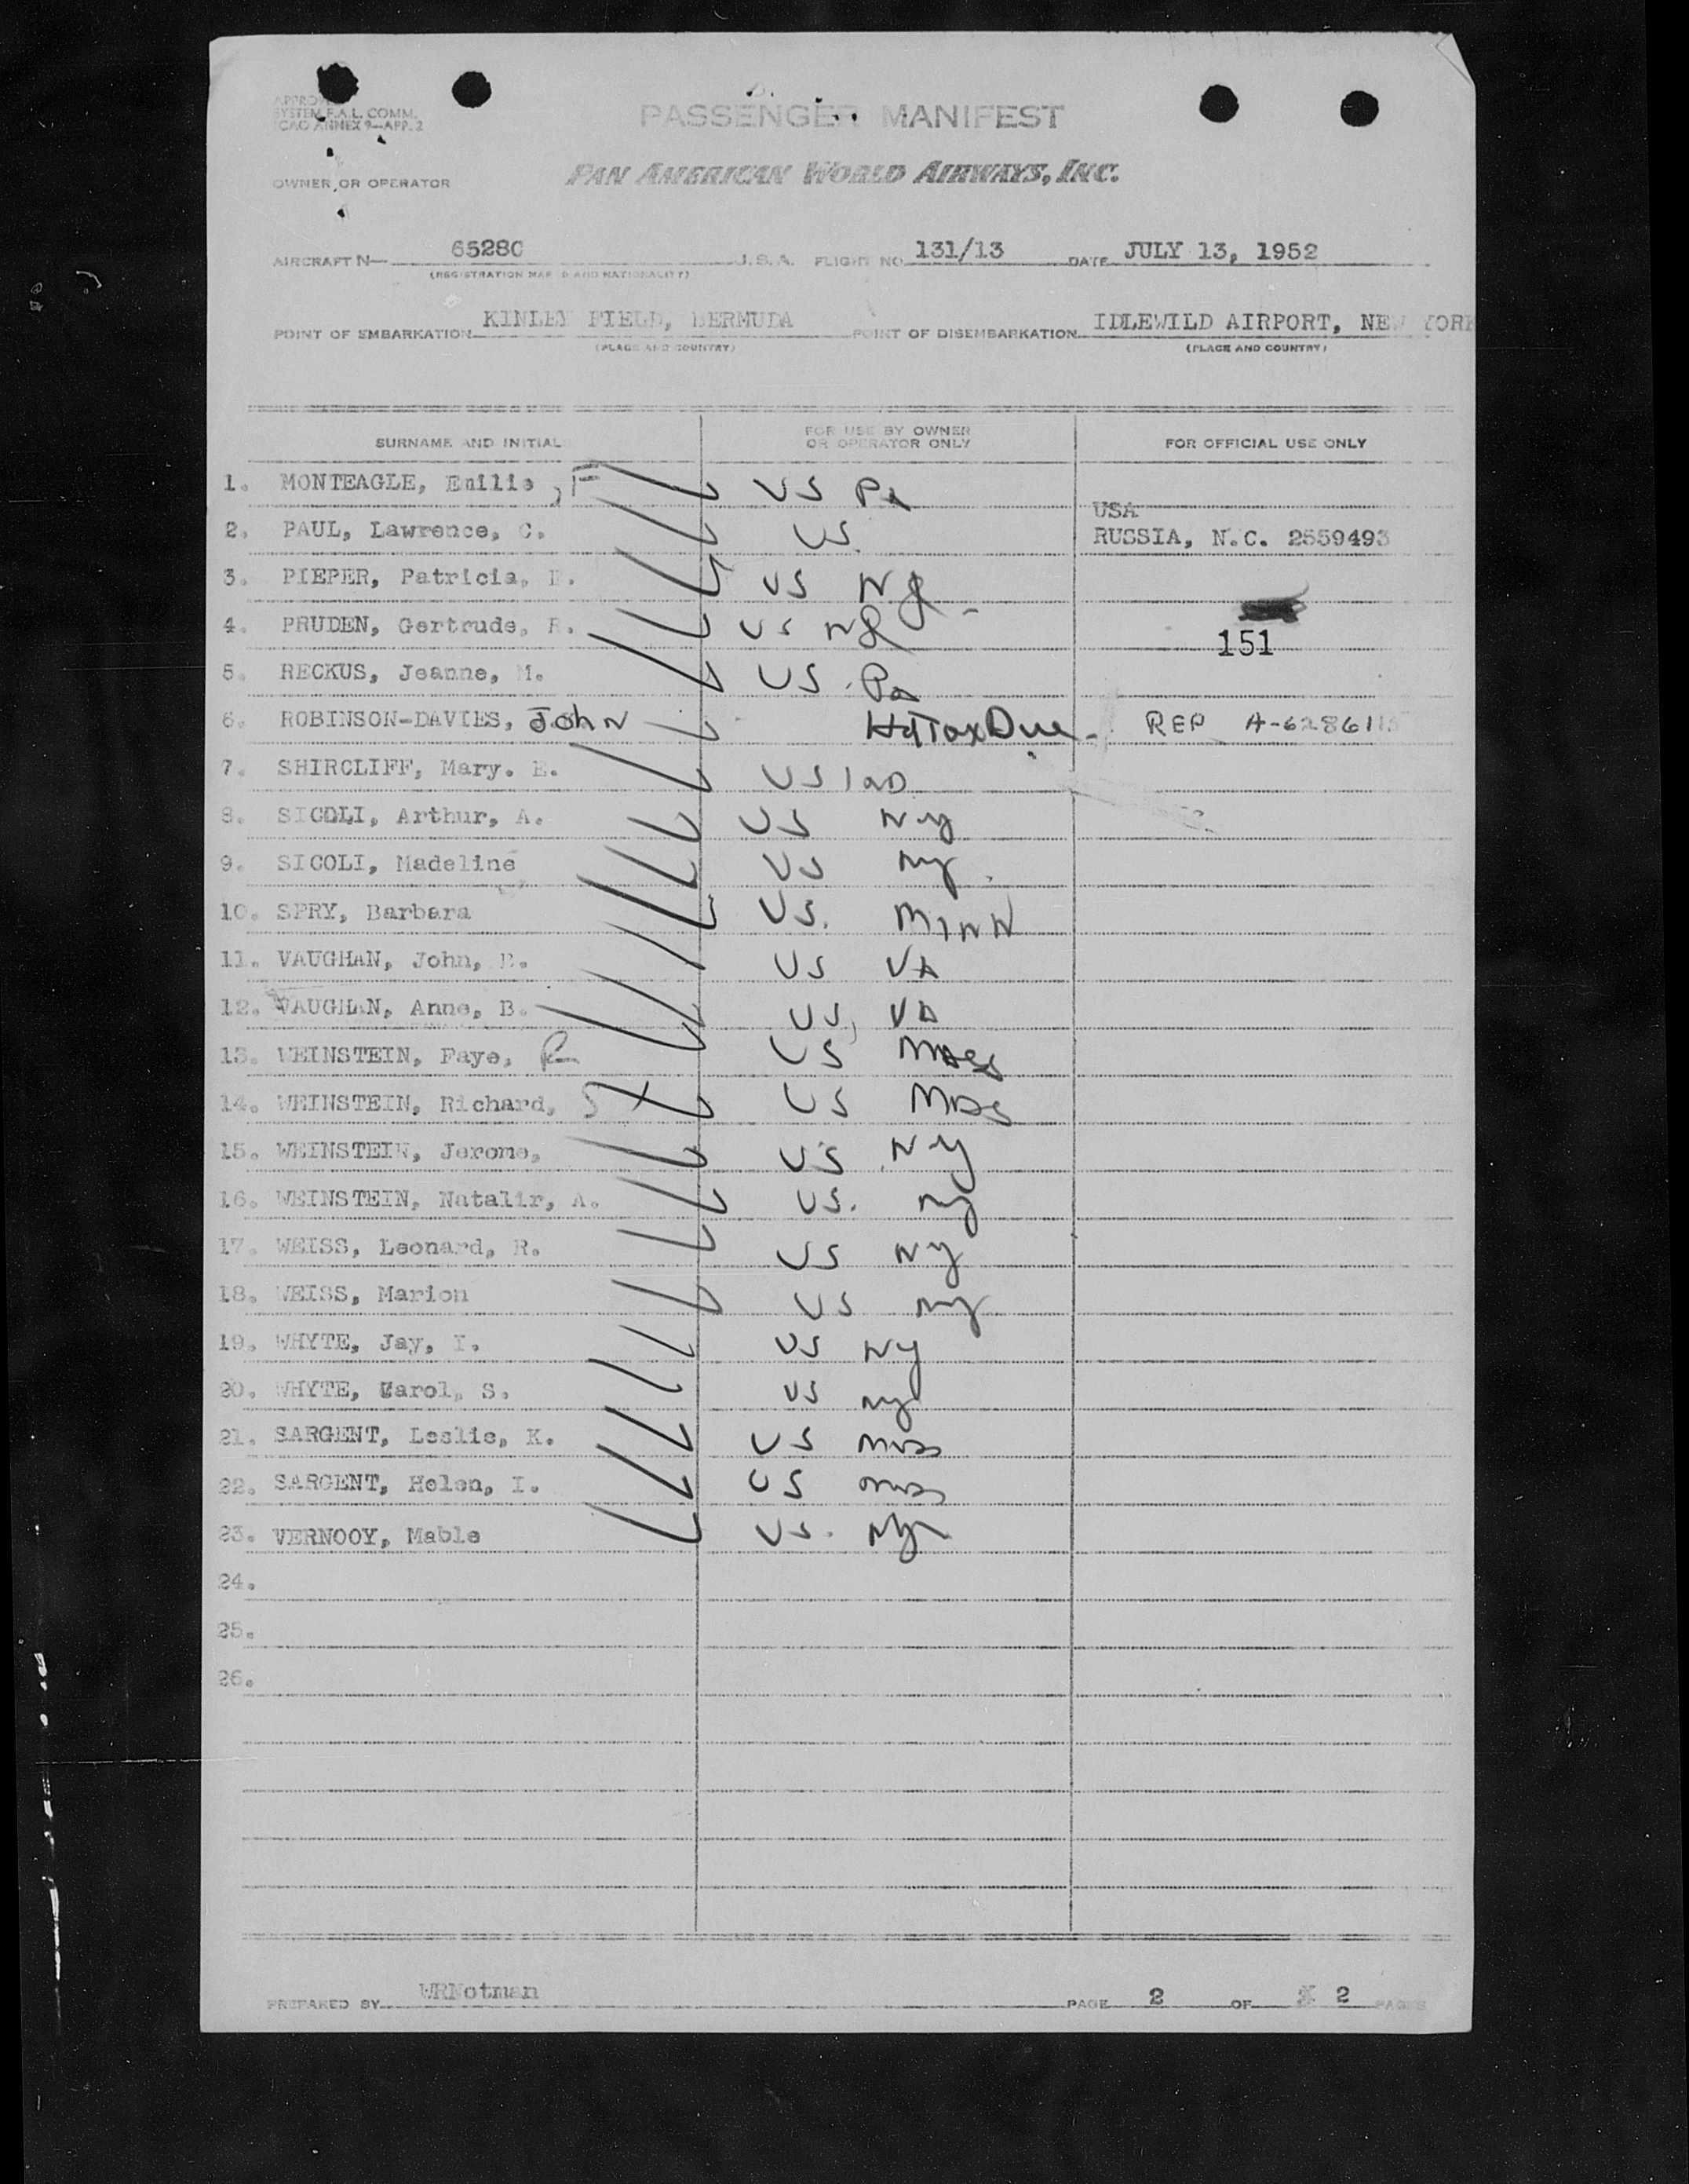 APPROVED
SYSTEM F.A.L. COMM.
ICAO ANNEX 9—APP. 2
PASSENGER MANIFEST
OWNER OR OPERATOR PAN AMERICAN WORLD AIRWAYS, INC.
AIRCRAFT N— 65280 U.S.A. FLIGHT NO 131/13 DATE JULY 13, 1952
(REGISTRATION MARKS AND NATIONALITY)
POINT OF EMBARKATION KINLEY FIELD, BERMUDA POINT OF DISEMBARKATION IDLEWILD AIRPORT, NEW YORK
(PLACE AND COUNTRY) (PLACE AND COUNTRY)
SURNAME AND INITIAL FOR USE BY OWNER OR OPERATOR ONLY FOR OFFICIAL USE ONLY
1. MONTEAGLE, Emilie, F US Pa
USA
2. PAUL, Lawrence, C. US RUSSIA, N.C. 2559493
3. PIEPER, Patricia, US NJ
4. PRUDEN, Gertrude, R. US NJ 151
5. RECKUS, Jeanne, M. US Pa
6. ROBINSON-DAVIES, John Hd Tax Due REP
7. SHIRCLIFF, Mary. E. US
8. SICOLI, Arthur, A. US Ny
9. SICOLI, Madeline US Ny
10. SPRY, Barbara US. MINN
11. VAUGHAN, John, US VA
12. VAUGHAN, Anne, B. US, VA
13. WEINSTEIN, Faye, R US Mass
14. WEINSTEIN, Richard, S US Mass
15. WEINSTEIN, Jerome, US Ny
16. WEINSTEIN, Natalir, A. US. Ny
17. WEISS, Leonard, R. US Ny
18. WEISS, Marion US Ny
19. WHYTE, Jay, I. US Ny
20. WHYTE, Carol, S. US Ny
21. SARGENT, Leslie, K. US Mass
22. SARGENT, Helen, I. US Mass
23. VERNOOY, Mable US. Ny
24.
25.
26.
PREPARED BY WRNotman PAGE 2 OF 2 PAGES